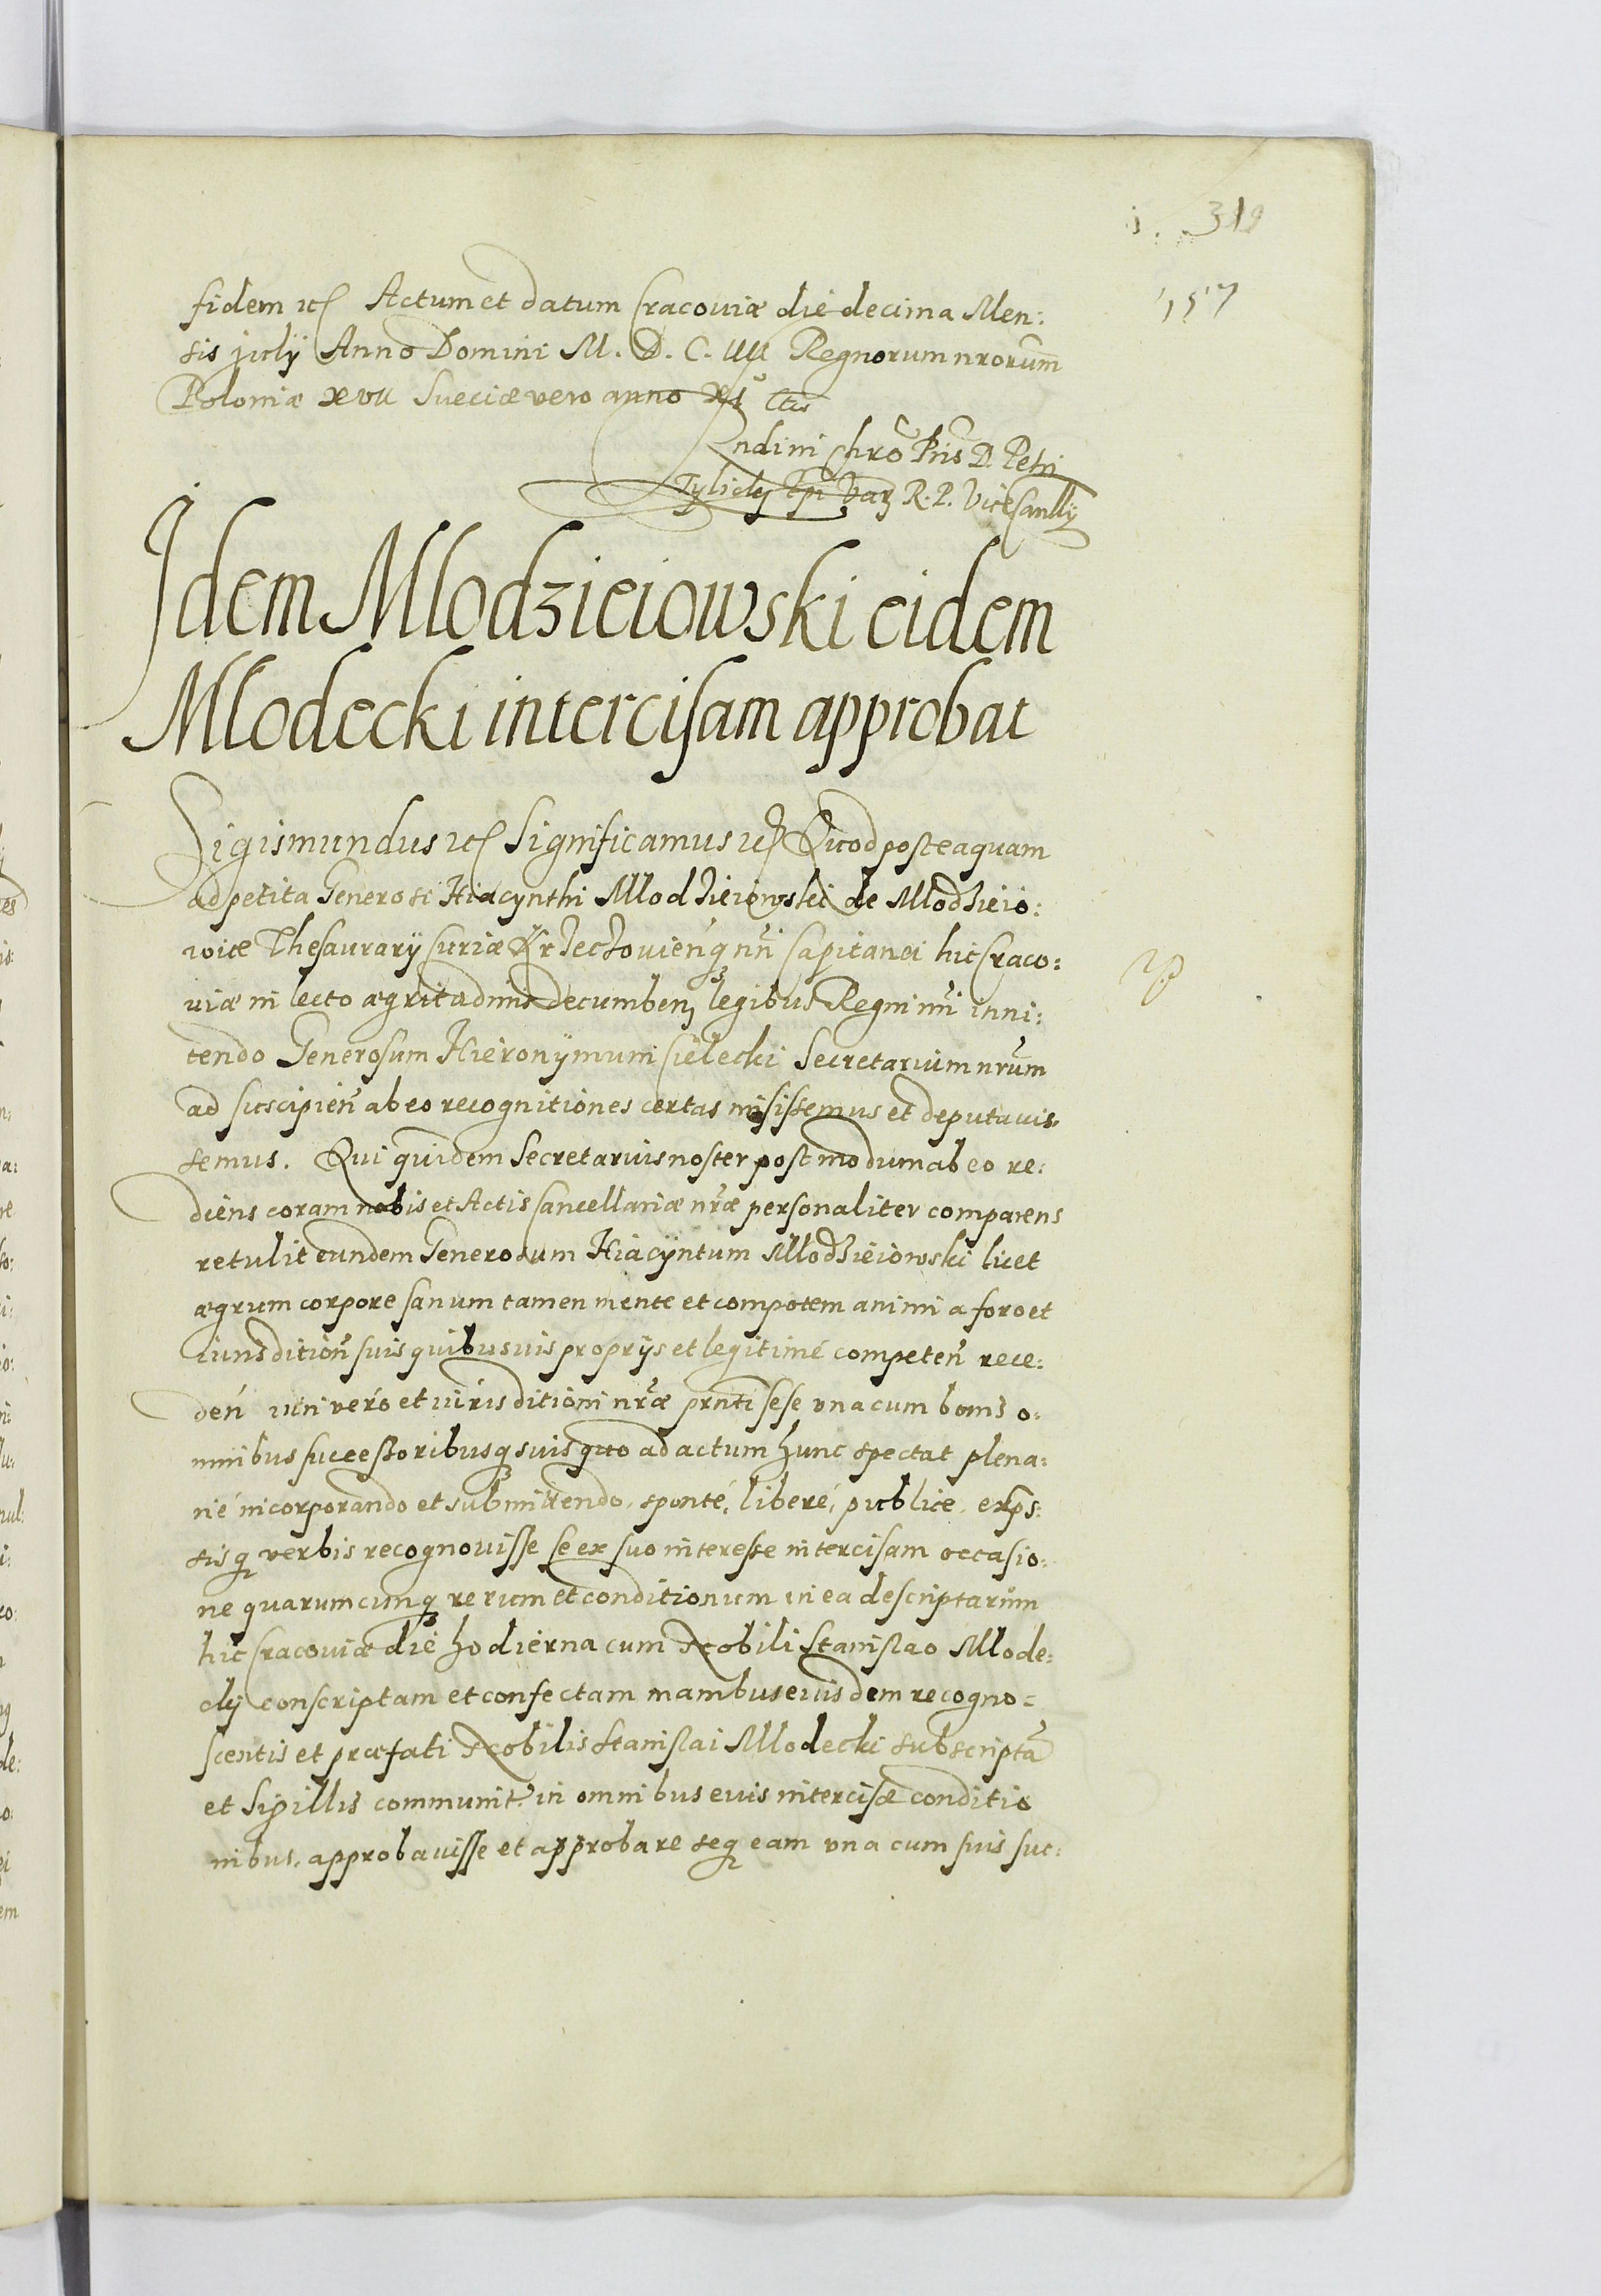 319
157
fidem etc Actum et datum Cracoviæ die decima Men:
sis july Anno Domini M. D. C. IIII Regnorum nrorum
Poloniæ XVII Sueciæ vero anno XI etc
Rndini Chro Pris D. Petri
Tylicky Epi Var R. P. ViceCancllij
Idem Mlodzieiowski eidem
Mlodecki intercisam approbat
Sigismundus etc Significamus etc Quod posteaquam
ad petita Generosi Hiacynthi Mlodzieiowski de Mlodzieio:
wice Thesaurarij Curiæ Krzeczovienq nri Capitanei hic Craco:
viæ in lecto ægritudinis decumbenz legibus Regni nri inni:
tendo Generosum Hieronymum Cielecki Secretarium nrum
ad suscipien ab eo recognitiones certas misissemus et deputavis:
semus. Qui quidem Secretarius noster postmodum ab eo re:
diens coram nobis et Actis Cancellariæ nræ personaliter comparens
retulit eundem Generosum Hiacyntum Mlodzieiowski licet
ægrum corpore sanum tamen mente et compotem animi a foro et
iurisdition suis quibusuis proprijs et legitimé competen rece:
den iuri veró et iurisditioni nræ prnti sese vna cum bonis o:
mnibus successoribusq suis quo ad actum hunc spectat plena:
rié incorporando et submittendo, sponté, liberé, publice, exps:
sisq verbis recognouisse se ex suo interesse intercisam occasio:
ne quarumcunq rerum et conditionum in ea descriptarum
hic Cracoviæ die hodierna cum Nobili Stanislao Mlode:
cky conscriptam et confectam manibus eiusdem recogno:
scentis et præfati Nobilis Stanislai Mlodecki subscripta
et Sigillis communit in omnibus euis intercisæ conditio
nibus, approbauisse et approbare seq eam vna cum suis suc: